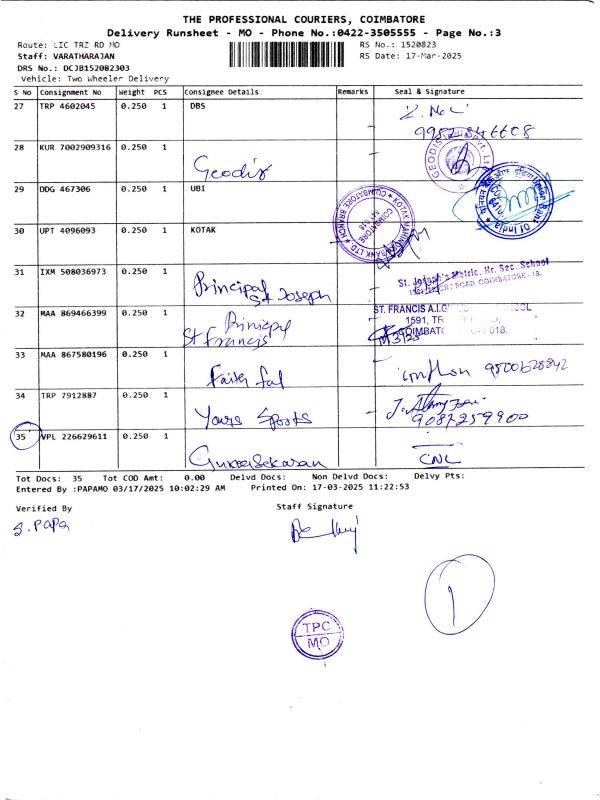 THE PROFESSIONAL COURIERS, COIMBATORE
Delivery Runsheet - MO - Phone No.:0422-3505555 - Page No.:3
Route: LIC TRZ RD MO
RS No.: 1520823
Staff: VARATHARAJAN
RS Date: 17-Mar-2025
DRS No.: DCJB152082303
Vehicle: Two Wheeler Delivery
S No Consignment No Weight PCS Consignee Details Remarks Seal & Signature
27 TRP 4602045 0.250 1 DBS
28 KUR 7002909316 0.250 1 Geodis
29 DDG 467306 0.250 1 UBI
30 UPT 4096093 0.250 1 KOTAK
KOTAK MAHINDRA BANK LTD
COIMBATORE BRANCH
COIMBATORE
641 018
Union Bank Of India
31 IXM 508036973 0.250 1 Principal St Joseph
St. Joseph's Matric. Hr. Sec. School
ROAD, COIMBATORE - 18.
32 MAA 869466399 0.250 1 Principal St Francis
ST. FRANCIS A.I. SCHOOL
1591, TR
COIMBATO 641 018.
33 MAA 867580196 0.250 1
34 TRP 7912887 0.250 1 Yours Spoots
9087259900
35 VPL 226629611 0.250 1 Gunasekaran
CNL
Tot Docs: 35 Tot COD Amt: 0.00 Delvd Docs: Non Delvd Docs: Delvy Pts:
Entered By :PAPAMO 03/17/2025 10:02:29 AM Printed On: 17-03-2025 11:22:53
Verified By
Staff Signature
S. PAPA
1
TPC
MO